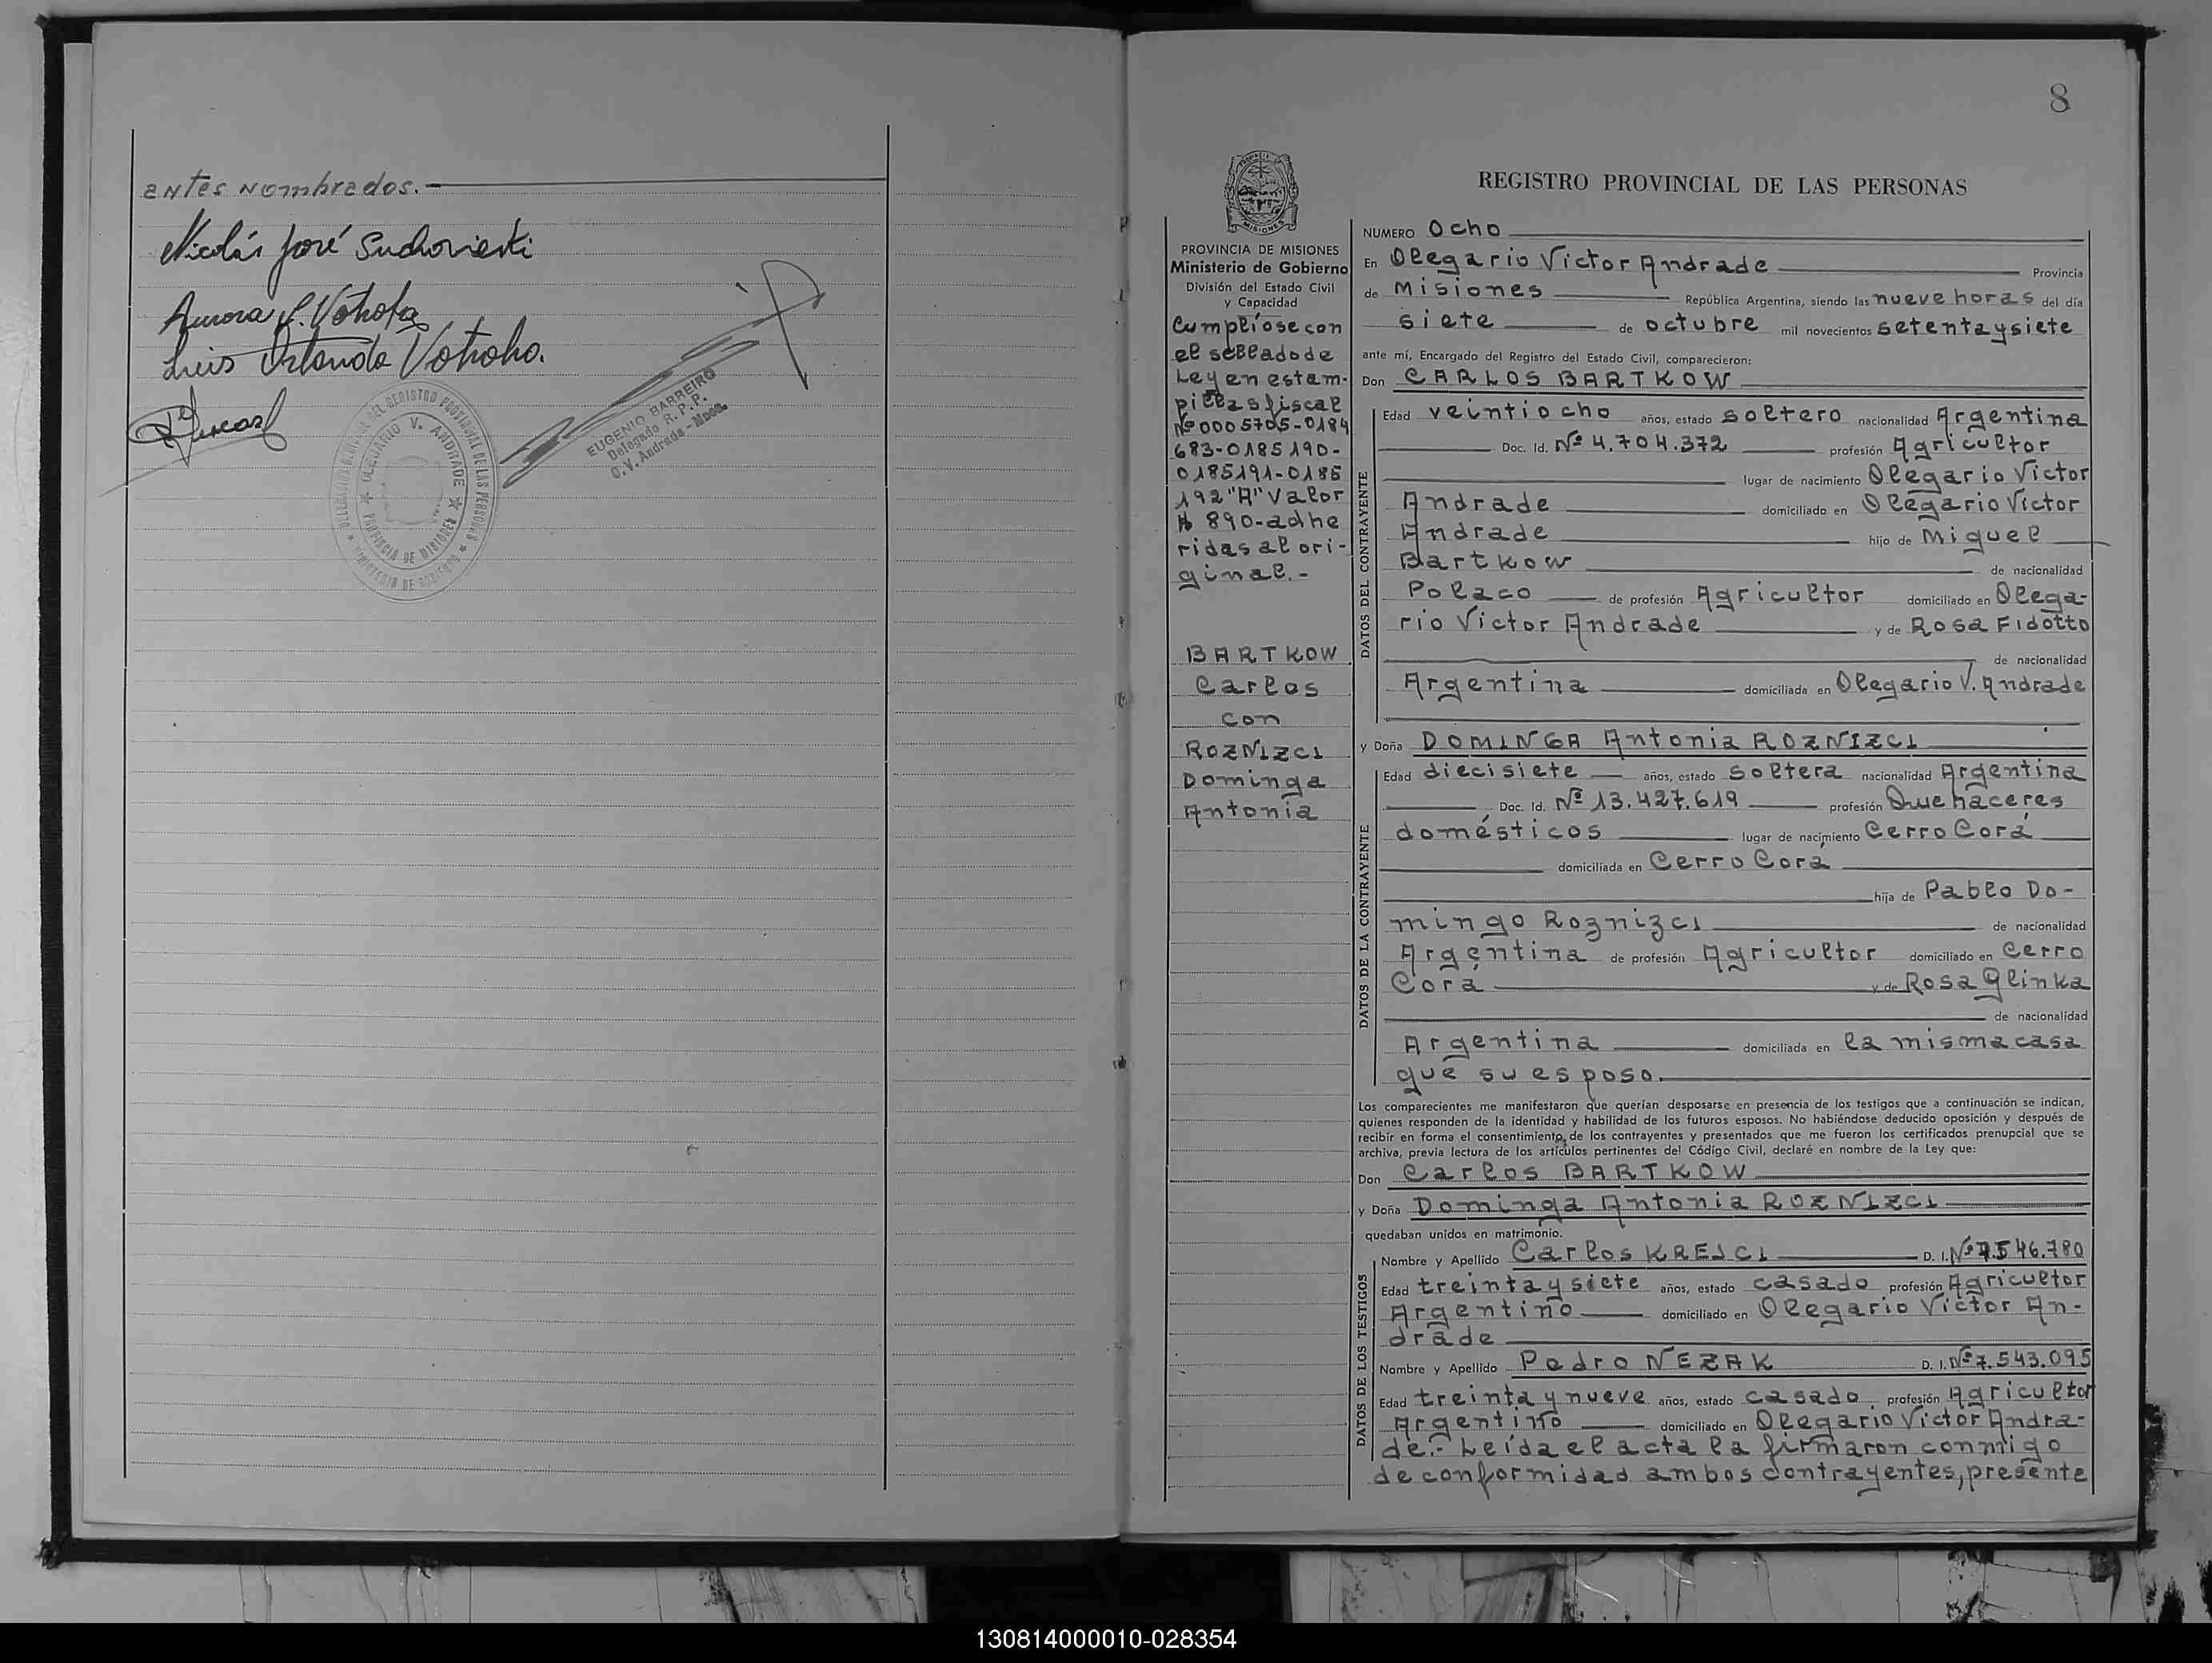 antes nombrados.-
Nicolás José Suchovieski
Aurora
Luis Orlando Votroho.
DEL REGISTRO PROVINCIAL DE LAS PERSONAS
OLEGARIO V. ANDRADE
PROVINCIA DE MISIONES
EUGENIO BARREIRO
Delegado R.P.P.
O.V. Andrade - Mnes.
8
PROVINCIA DE
MISIONES
PROVINCIA DE MISIONES
Ministerio de Gobierno
División del Estado Civil
y Capacidad
Cumplióse con
el sellado de
Ley en estam-
pillas fiscal
Nº 0005705-0184
683-0185190-
0185191-0185
192"A" Valor
$ 890-adhe
ridas al ori-
ginal.-
BARTKOW
Carlos
con
ROZNIZCI
Dominga
Antonia
REGISTRO PROVINCIAL DE LAS PERSONAS
NUMERO Ocho
En Olegario Victor Andrade Provincia
de Misiones República Argentina, siendo las nueve horas del día
siete de octubre mil novecientos setenta y siete
ante mí, Encargado del Registro del Estado Civil, comparecieron:
Don CARLOS BARTKOW
DATOS DEL CONTRAYENTE
Edad veintiocho años, estado soltero nacionalidad Argentina
Doc. Id. Nº 4.704.372 profesión Agricultor
lugar de nacimiento Olegario Victor
Andrade domiciliado en Olegario Victor
Andrade hijo de Miguel
Bartkow de nacionalidad
Polaco de profesión Agricultor domiciliado en Olega-
rio Victor Andrade y de Rosa Fidotto
de nacionalidad
Argentina domiciliada en Olegario V. Andrade
y Doña DOMINGA Antonia ROZNIZCI
DATOS DE LA CONTRAYENTE
Edad diecisiete años, estado soltera nacionalidad Argentina
Doc. Id. Nº 13.427.619 profesión Quehaceres
domésticos lugar de nacimiento Cerro Corá
domiciliada en Cerro Corá
hija de Pablo Do-
mingo Roznizci de nacionalidad
Argentina de profesión Agricultor domiciliado en Cerro
Corá y de Rosa Glinka
de nacionalidad
Argentina domiciliada en la misma casa
que su esposo.
Los comparecientes me manifestaron que querían desposarse en presencia de los testigos que a continuación se indican,
quienes responden de la identidad y habilidad de los futuros esposos. No habiéndose deducido oposición y después de
recibir en forma el consentimiento de los contrayentes y presentados que me fueron los certificados prenupcial que se
archiva, previa lectura de los artículos pertinentes del Código Civil, declaré en nombre de la Ley que:
Don Carlos BARTKOW
y Doña Dominga Antonia ROZNIZCI
quedaban unidos en matrimonio.
DATOS DE LOS TESTIGOS
Nombre y Apellido Carlos KREJCI D. I. Nº 7.546.780
Edad treinta y siete años, estado casado profesión Agricultor
Argentino domiciliado en Olegario Victor An-
drade
Nombre y Apellido Pedro NEZAK D. I. Nº 7.543.095
Edad treinta y nueve años, estado casado profesión Agricultor
Argentino domiciliado en Olegario Victor Andra-
de.- Leída el acta la firmaron conmigo
de conformidad ambos contrayentes, presente
130814000010-028354